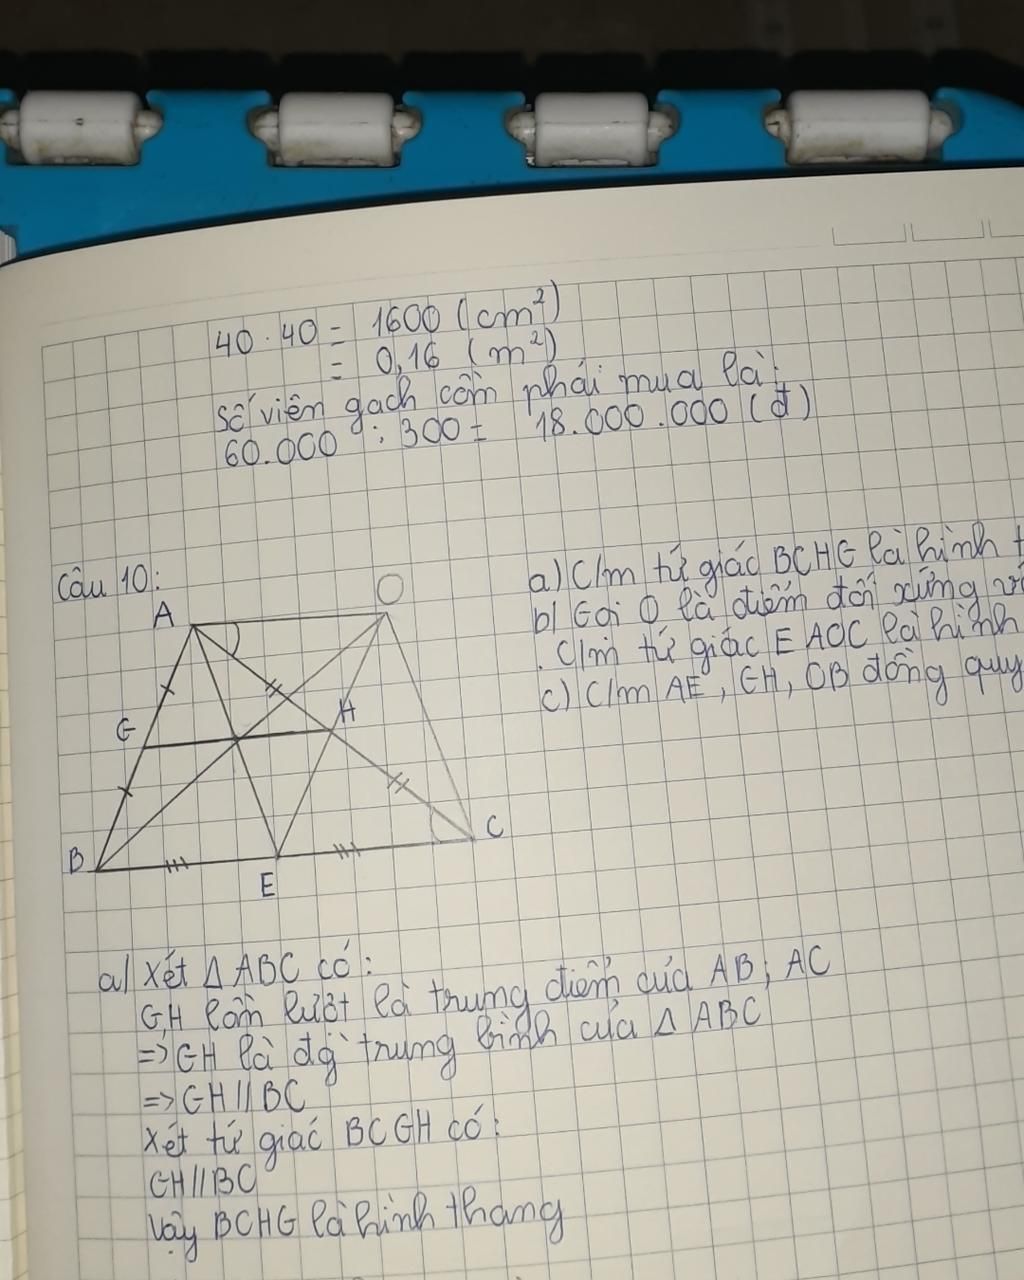 40 . 40 = 1600 (cm²)
= 0,16 (m²)
Số viên gạch cần phải mua là:
60.000 : 300 = 18.000.000 (đ)
Câu 10:
a) C/m tứ giác BCHG là hình
b) Gọi O là điểm đối xứng
. C/m tứ giác EAOC là hình
c) C/m AE, GH, OB đồng quy
A
O
G
H
B
E
C
a) Xét Δ ABC có:
G,H lần lượt là trung điểm của AB; AC
=> GH là đg` trung bình của Δ ABC
=> GH // BC
Xét tứ giác BCGH có:
GH // BC
Vậy BCHG là hình thang